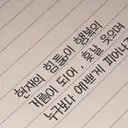 현재의 힘듦이 행복의
거름이 되어 훗날 웃으며
누구보다 예쁘게 피어나길